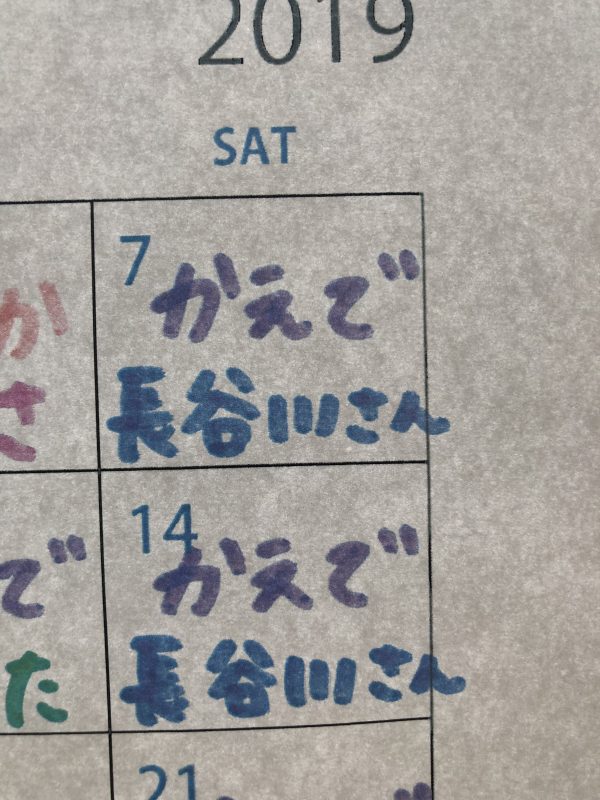 2019
SAT
7
かえで
か
長谷川さん
さ
14
かえで
で
長谷川さん
た
21